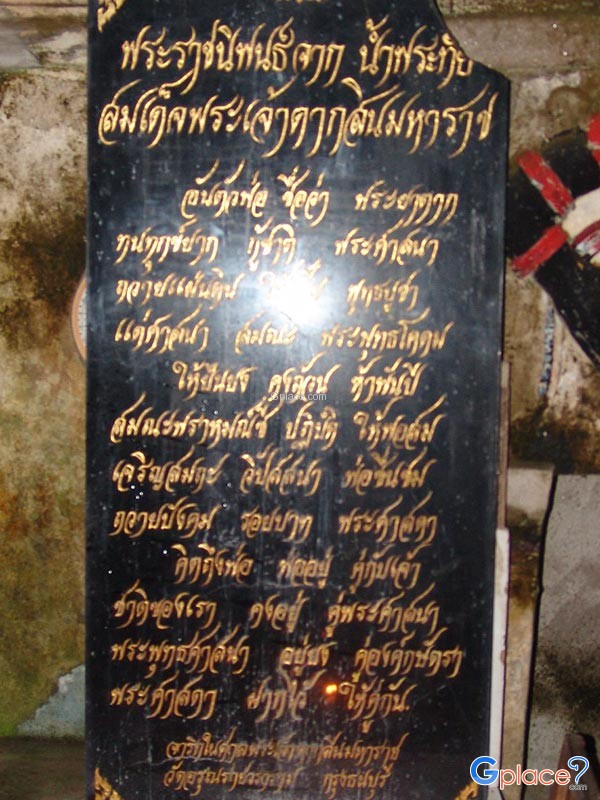 พระราชนิพนธ์จาก น้ำพระทัย
สมเด็จพระเจ้าตากสินมหาราช
อันตัวพ่อ ชื่อว่า พระยาตาก
ทนทุกข์ยาก กู้ชาติ พระศาสนา
ถวายแผ่นดิน ให้เป็น พุทธบูชา
แด่ศาสนา สมณะ พระพุทธโคดม
ให้ยืนยง คงถ้วน ห้าพันปี
สมณะพราหมณ์ชี ปฏิบัติ ให้พอสม
เจริญสมถะ วิปัสสนา พ่อชื่นชม
ถวายบังคม รอยบาท พระศาสดา
คิดถึงพ่อ พ่ออยู่ คู่กับเจ้า
ชาติของเรา คงอยู่ คู่พระศาสนา
พระพุทธศาสนา อยู่ยง คู่องค์กษัตรา
พระศาสดา ฝากไว้ ให้คู่กัน
จารึกในศาลพระเจ้าตากสินมหาราช
วัดอรุณราชวราราม กรุงธนบุรี
Gplace?.com